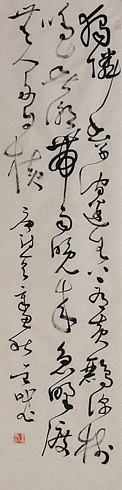 獨憐幽草澗邊生上有黃鸝深樹
鳴春潮帶雨晚來急野渡
無人舟自橫